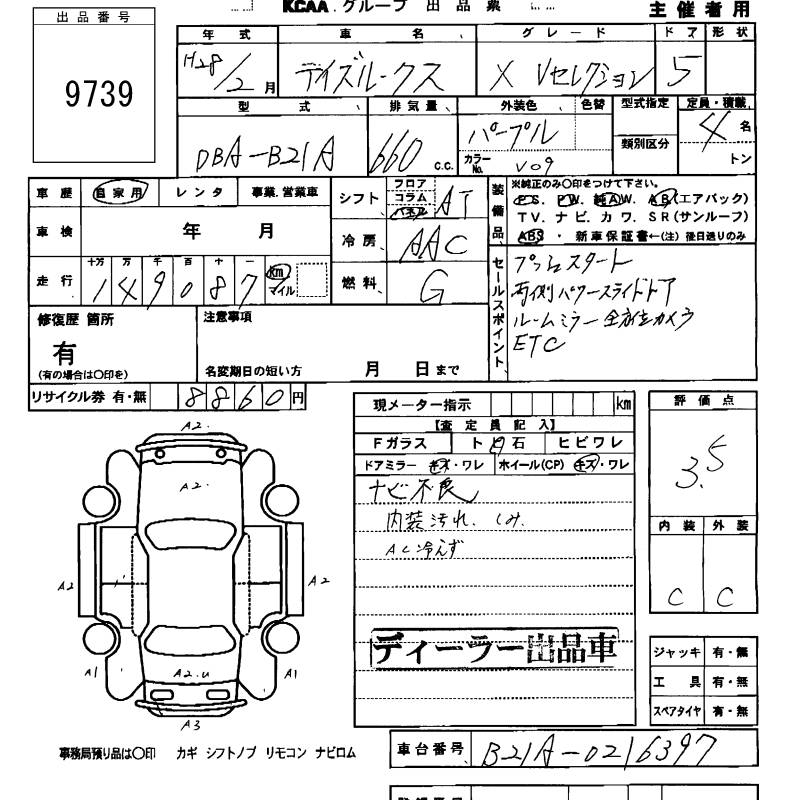 KCAA グループ 出品票
主催者用
出品番号
9739
年式 車名 グレード ドア 形状
H28/2月 デイズルークス X Vセレクション 5
型式 排気量 外装色 色替 型式指定 定員・積載
DBA-B21A 660 c.c. パープル カラーNo. V09 類別区分 4名 トン
車歴 自家用 レンタ 事業.営業車
シフト フロア コラム パネル AT
装備品 ※純正のみ〇印をつけて下さい。
P.S. P.W. 純A.W. A.B(エアバック)
T V. ナビ. カワ. S R (サンルーフ)
ABS ・ 新車保証書←(注) 後日送りのみ
車検 年 月
冷房 AAC
走行 十万 万 千 百 十 一
149087 km マイル
燃料 G
セールスポイント
プッシュスタート
両側パワースライドドア
ルームミラー全方位カメラ
ETC
修復歴 箇所
有
(有の場合は〇印を)
注意事項
名変期日の短い方 月 日まで
リサイクル券 有・無 8860円
現メーター指示 km
【査定員記入】
Fガラス ト ビ 石 ヒビワレ
ドアミラー キズ・ワレ ホイール(CP) キズ・ワレ
ナビ不良
内装汚れ. しみ.
AC冷えず
ディーラー出品車
評価点
3.5
内装 外装
C C
ジャッキ 有・無
工具 有・無
スペアタイヤ 有・無
A2.
A2.
A2
A2
A1
A2.u
A1
A3
事務局預り品は〇印 カギ シフトノブ リモコン ナビロム
車台番号 B21A-0216397